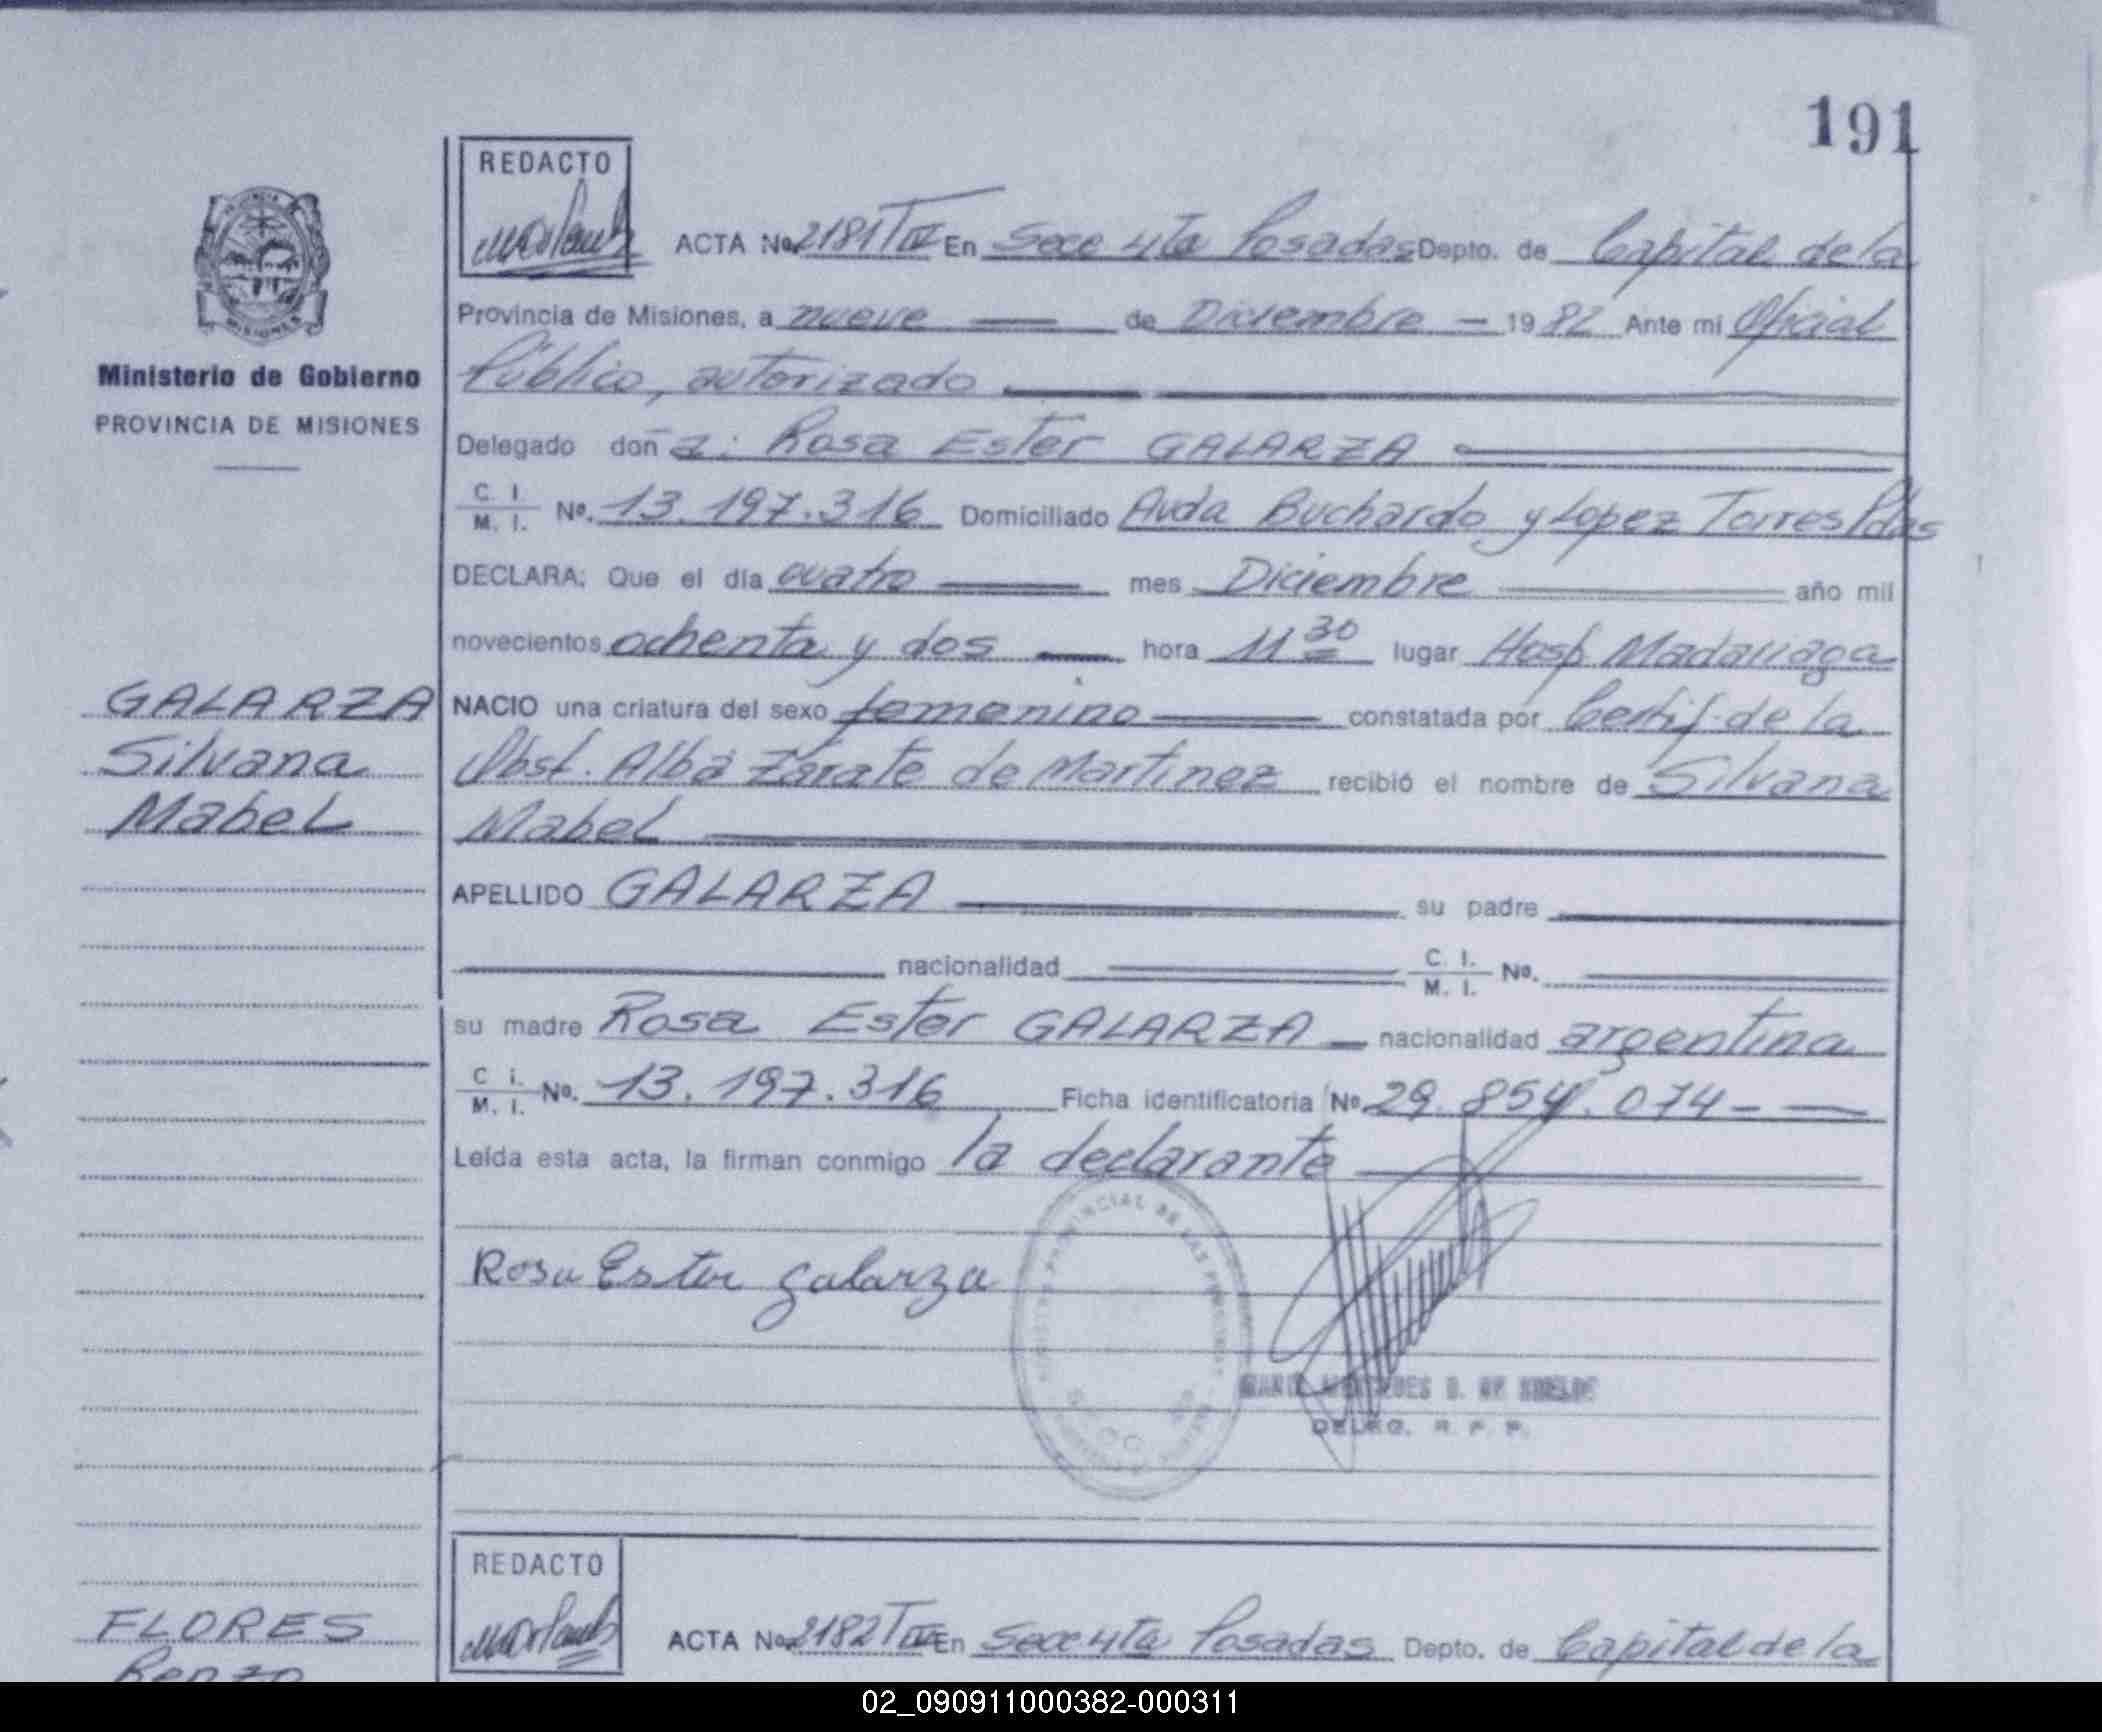 191
REDACTO
ACTA No. 2181 T IV En Secc 4ta Posadas Depto. de Capital de la
Provincia de Misiones, a nueve de Diciembre 1982 Ante mi Oficial
Ministerio de Gobierno
Público, autorizado
PROVINCIA DE MISIONES
Delegado doña: Rosa Ester GALARZA
C. I. / M. I. No. 13.197.316 Domiciliado Avda Buchardo y Lopez Torres Pdas
DECLARA: Que el día cuatro mes Diciembre año mil
novecientos ochenta y dos hora 11 30 lugar Hosp. Madariaga
GALARZA
Silvana
Mabel
NACIO una criatura del sexo femenino constatada por Certif. de la
Obst. Alba Zarate de Martinez recibió el nombre de Silvana
Mabel
APELLIDO GALARZA su padre
nacionalidad C. I. / M. I. No.
su madre Rosa Ester GALARZA nacionalidad argentina
C. I. / M. I. No. 13.197.316 Ficha identificatoria No. 29.854.074
Leída esta acta, la firman conmigo la declarante
Rosa Ester Galarza
DELEG. R. P. P.
REDACTO
FLORES
Renzo
ACTA No. 2182 T IV En Secc 4ta Posadas Depto. de Capital de la
02_090911000382-000311